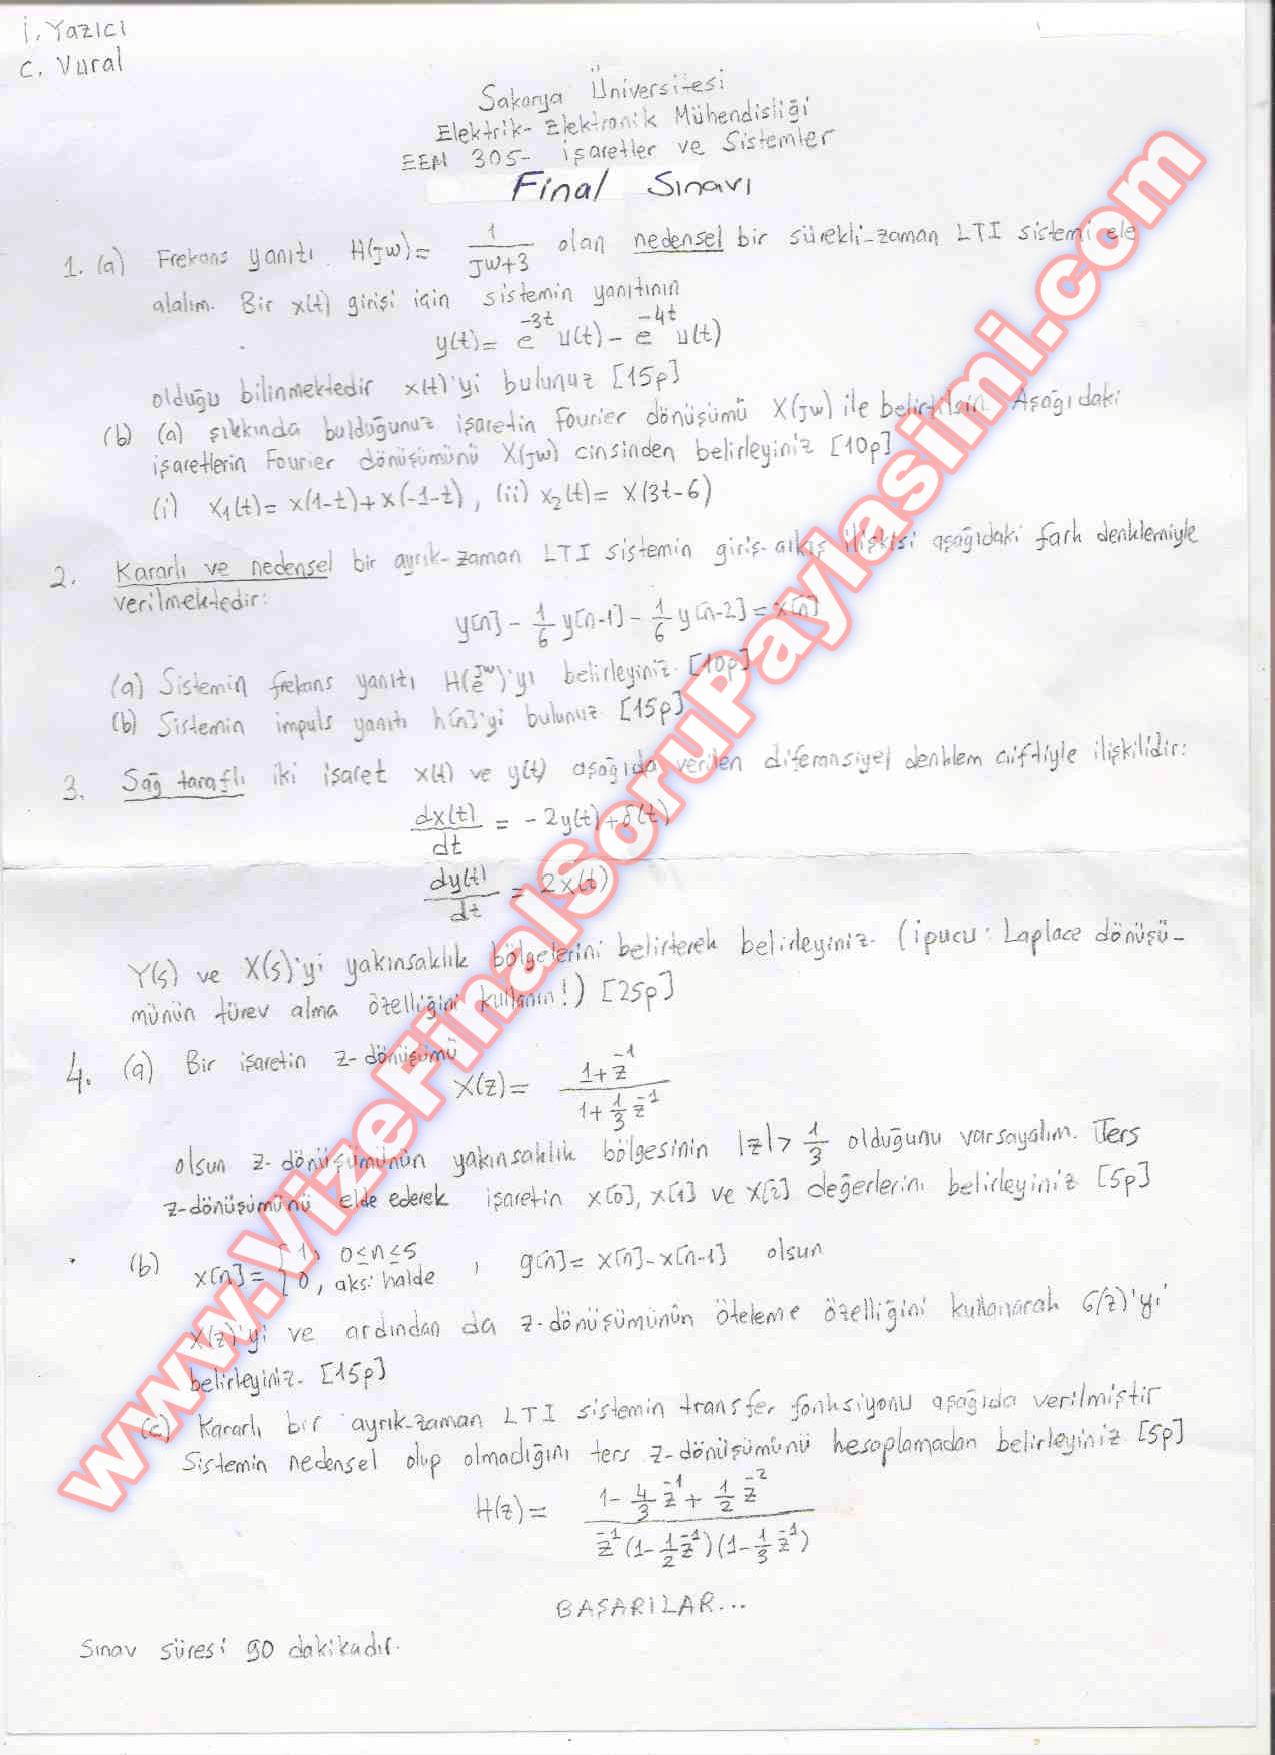 İ. Yazıcı
C. Vural
Sakarya Üniversitesi
Elektrik-Elektronik Mühendisliği
EEM 305- İşaretler ve Sistemler
Final Sınavı
1. (a) Frekans yanıtı H(jw)= 1/(jw+3) olan nedensel bir sürekli-zaman LTI sistemi ele
alalım. Bir x(t) girişi için sistemin yanıtının
y(t)= e^-3t u(t) - e^-4t u(t)
olduğu bilinmektedir x(t)'yi bulunuz [15p]
(b) (a) şıkkında bulduğunuz işaretin Fourier dönüşümü X(jw) ile belirtilsin. Aşağıdaki
işaretlerin Fourier dönüşümünü X(jw) cinsinden belirleyiniz [10p]
(i) x₁(t)= x(1-t)+x(-1-t), (ii) x₂(t)= x(3t-6)
2. Kararlı ve nedensel bir ayrık-zaman LTI sistemin giriş-çıkış ilişkisi aşağıdaki fark denklemiyle
verilmektedir:
y[n] - 1/6 y[n-1] - 1/6 y[n-2] = x[n]
(a) Sistemin frekans yanıtı H(e^jw)'yı belirleyiniz. [10p]
(b) Sistemin impuls yanıtı h[n]'yi bulunuz [15p]
3. Sağ taraflı iki işaret x(t) ve y(t) aşağıda verilen diferansiyel denklem çiftiyle ilişkilidir:
dx(t)/dt = -2y(t)+δ(t)
dy(t)/dt = 2x(t)
Y(s) ve X(s)'yi yakınsaklık bölgelerini belirterek belirleyiniz. (ipucu: Laplace dönüşü-
münün türev alma özelliğini kullanın!) [25p]
4. (a) Bir işaretin z-dönüşümü
X(z)= (1+z^-1)/(1+1/3 z^-1)
olsun z-dönüşümünün yakınsaklık bölgesinin |z|> 1/3 olduğunu varsayalım. Ters
z-dönüşümünü elde ederek işaretin x[0], x[1] ve x[2] değerlerini belirleyiniz [5p]
(b) x[n]= { 1, 0≤n≤5
0, aksi halde , g[n]= x[n]-x[n-1] olsun
X(z)'yi ve ardından da z-dönüşümünün öteleme özelliğini kullanarak G(z)'yi
belirleyiniz. [15p]
(c) Kararlı bir ayrık-zaman LTI sistemin transfer fonksiyonu aşağıda verilmiştir
Sistemin nedensel olup olmadığını ters z-dönüşümünü hesaplamadan belirleyiniz [5p]
H(z)= (1- 4/3 z^-1 + 1/2 z^-2)/(z^-1 (1- 1/2 z^-1)(1- 1/3 z^-1))
BAŞARILAR...
Sınav süresi 90 dakikadır.
www.VizeFinalSoruPaylasimi.com